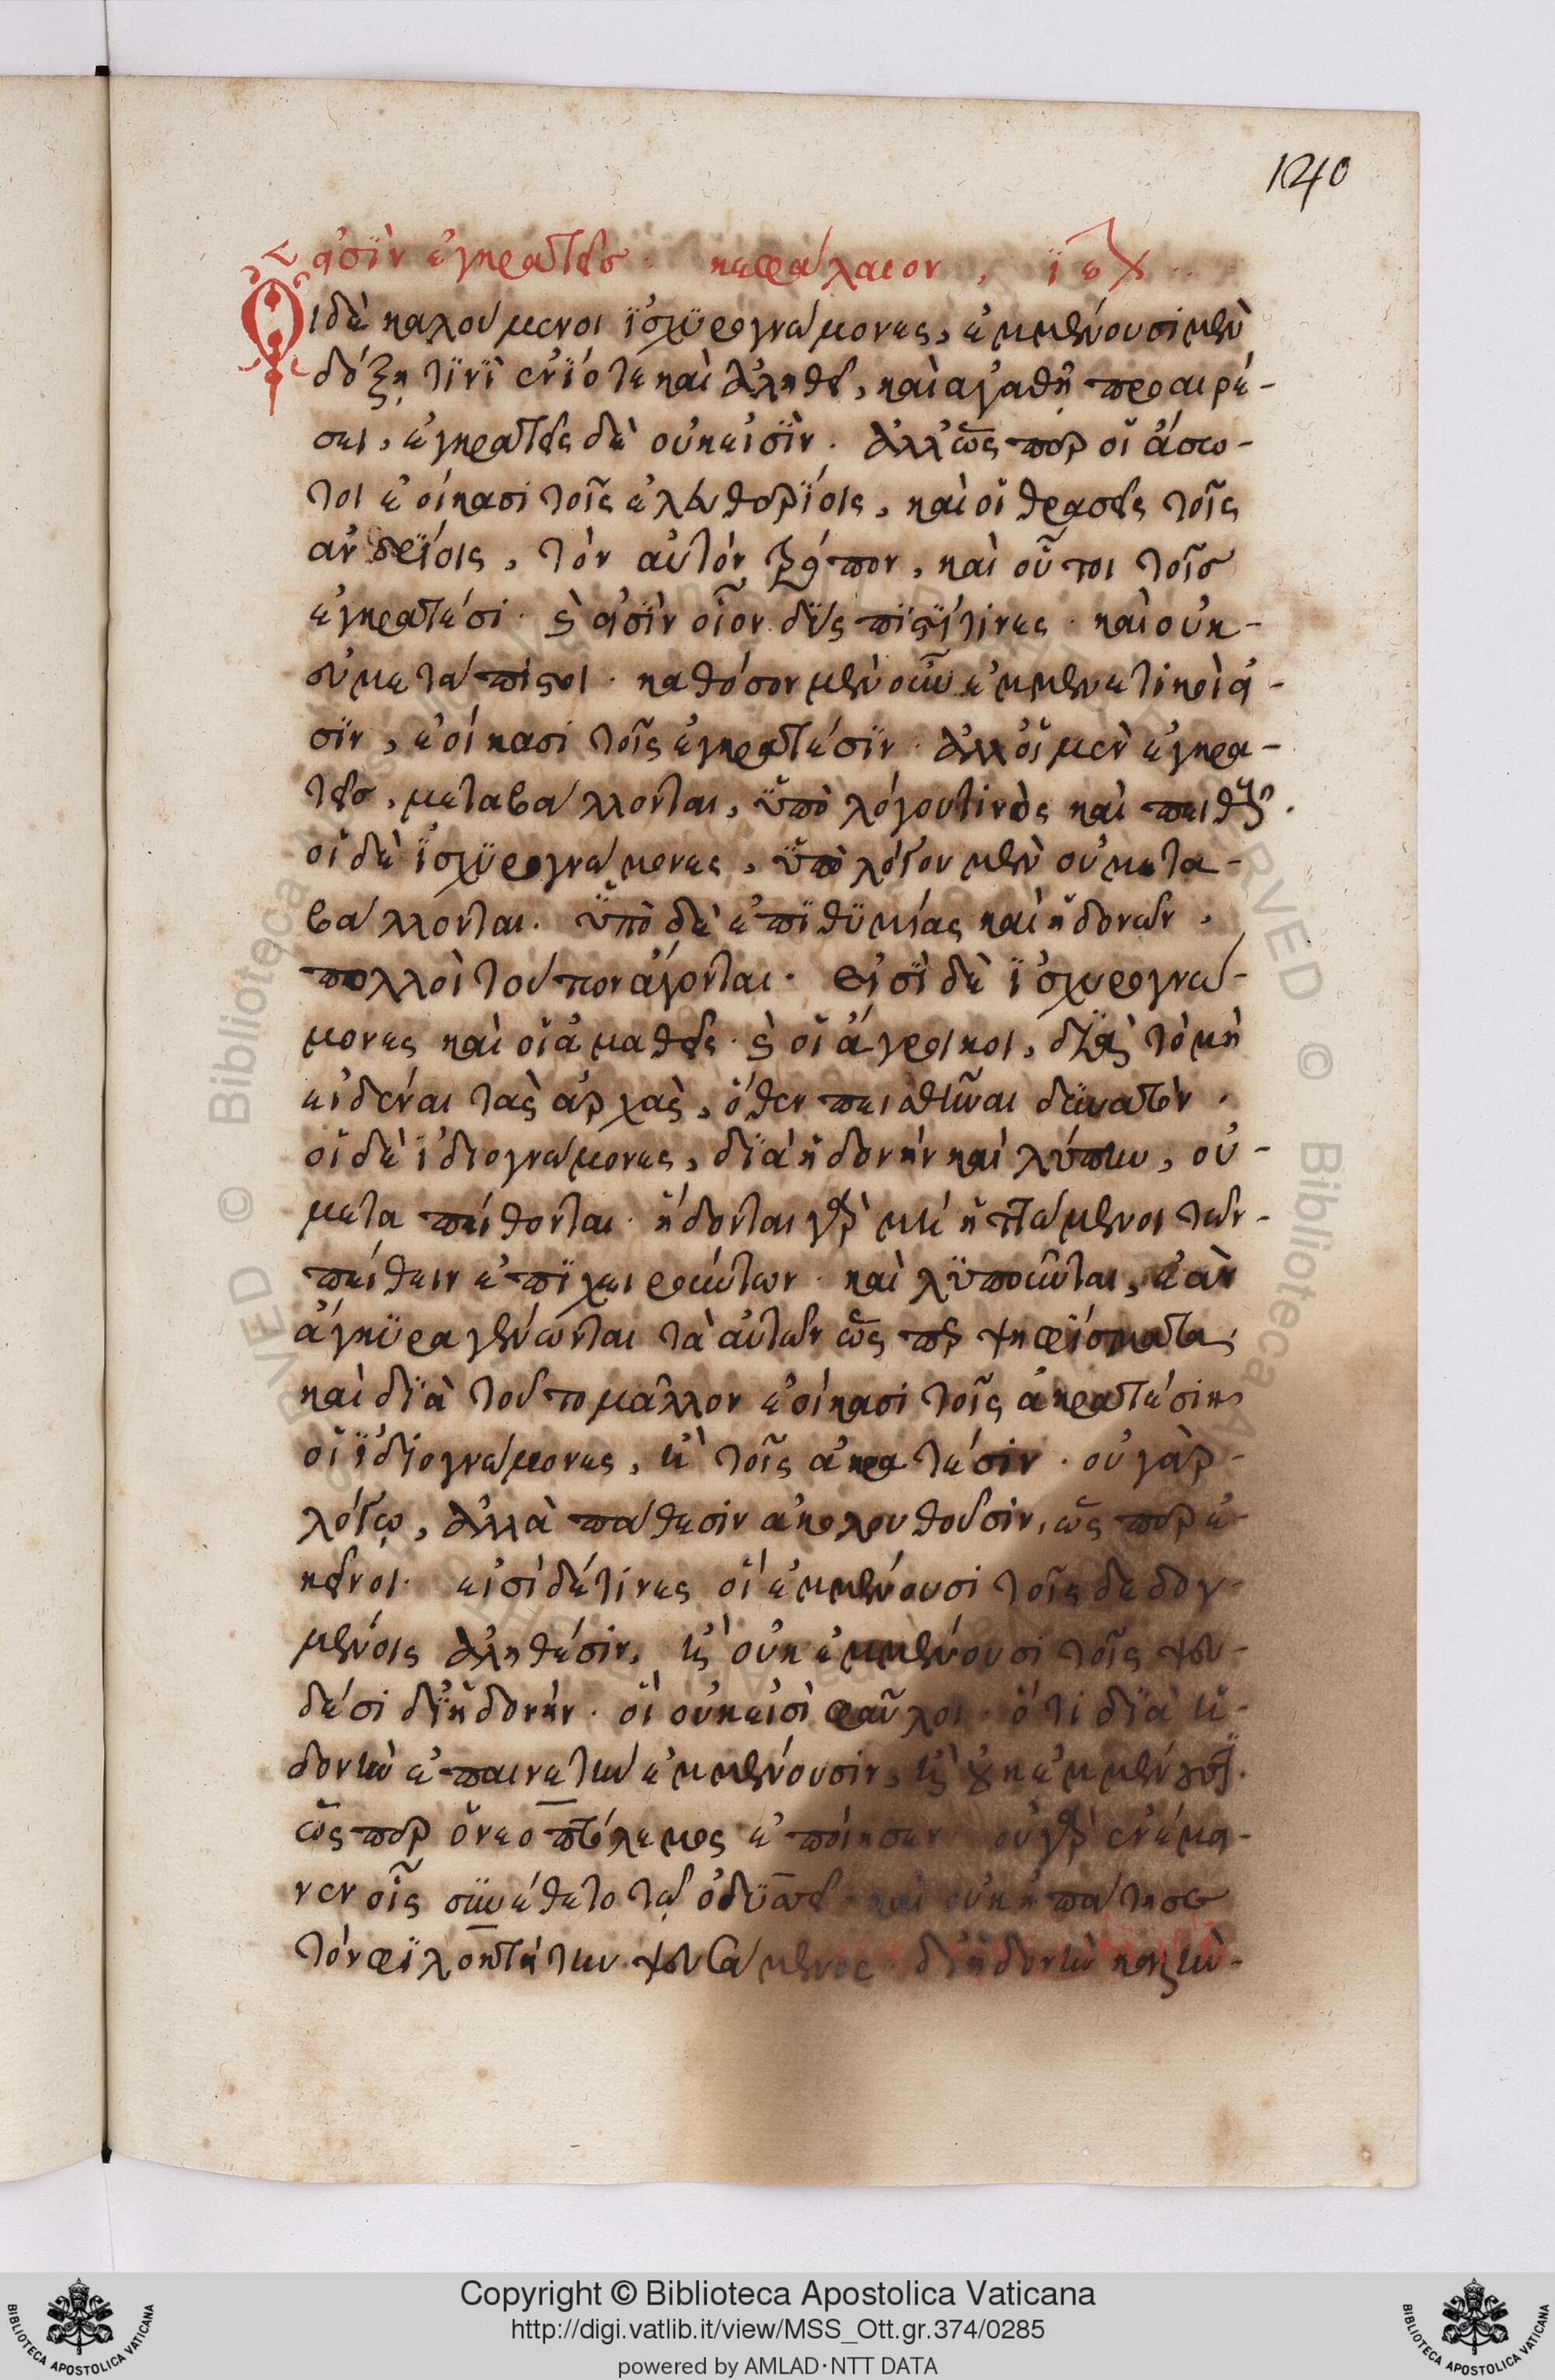 140
εἰσὶν ἐγκρατεῖσ· κεφάλαιον, ιεχ··
Οι δὲ καλούμενοι ἰσχυρογνώμονες, ἐμμένουσι μὲν
δόξῃ τινὶ ἐνίοτε καὶ ἀληθεῖ, καὶ ἀγαθῇ προαιρέ-
σει, ἐγκρατεῖς δὲ οὐκ εἰσὶν· ἀλλ' ὥς περ οἱ ἄσω-
τοι ἐοίκασι τοῖς ἐλευθερίοις, καὶ οἱ θρασεῖς τοῖς
ἀνδρείοις, τὸν αὐτὸν τρόπον, καὶ οὗτοι τοῖσ
ἐγκρατέσι· καὶ εἰσὶν οἷον δύς πιστοί τινες· καὶ οὐκ-
εὐμετάπιστοι· καθόσον μὲν οὖν ἐμμενετικοὶ εἰ-
σὶν, ἐοίκασι τοῖς ἐγκρατέσιν· ἀλλ' οἱ μὲν ἐγκρα-
τεῖσ, μεταβάλλονται, ὑπὸ λόγου τινὸς καὶ πειθοῦς·
οἱ δὲ ἰσχυρογνώμονες, ὑπὸ λόγου μὲν οὐ μετα-
βάλλονται· ὑπὸ δὲ ἐπιθυμίας καὶ ἡδονῶν,
πολλοὶ τούτων ἄγονται· εἰσὶ δὲ ἰσχυρογνώ-
μονες καὶ οἱ ἀμαθεῖς· καὶ οἱ ἄγροικοι, διὰ τὸ μὴ
εἰδέναι τὰς ἀρχὰς, ὅθεν πεισθῆναι δυνατὸν,
οἱ δὲ ἰδιογνώμονες, διὰ ἡδονὴν καὶ λύπην, οὐ-
μεταπείθονται· ἥδονται γὰρ μὴ ἡττώμενοι τῶν-
πείθειν ἐπιχειρούντων· καὶ λυποῦνται, ἐὰν
ἄκυρα γένωνται τὰ αὐτῶν ὥς περ ψηφίσματα,
καὶ διὰ τοῦτο μᾶλλον ἐοίκασι τοῖς ἀκρατέσιν
οἱ ἰδιογνώμονες, ἢ τοῖς ἀκρατέσιν· οὐ γὰρ-
λόγῳ, ἀλλὰ πάθεσιν ἀκολουθοῦσιν, ὥς περ ἐ-
κεῖνοι· εἰσὶ δέ τινες οἳ ἐμμένουσι τοῖς δεδογ-
μένοις ἀληθέσιν, καὶ οὐκ ἐμμένουσι τοῖς ψευ-
δέσι δι' ἡδονήν· οἳ οὐκ εἰσὶ φαῦλοι· ὅτι διὰ ἡ-
δονὴν ἐπαινετὴν ἐμμένουσιν, καὶ οὐκ ἐμμένουσι·
ὥς περ ὁ νεοπτόλεμος ἐποίησεν· οὐ γὰρ ἐνέμει-
νεν οἷς συνέθετο τῷ ὀδυσσεῖ· καὶ οὐκ ἠπάτησε
τὸν φιλοκτήτην ψευσάμενος· δι' ἡδονὴν καὶ τὴν-
Copyright © Biblioteca Apostolica Vaticana
http://digi.vatlib.it/view/MSS_Ott.gr.374/0285
powered by AMLAD·NTT DATA